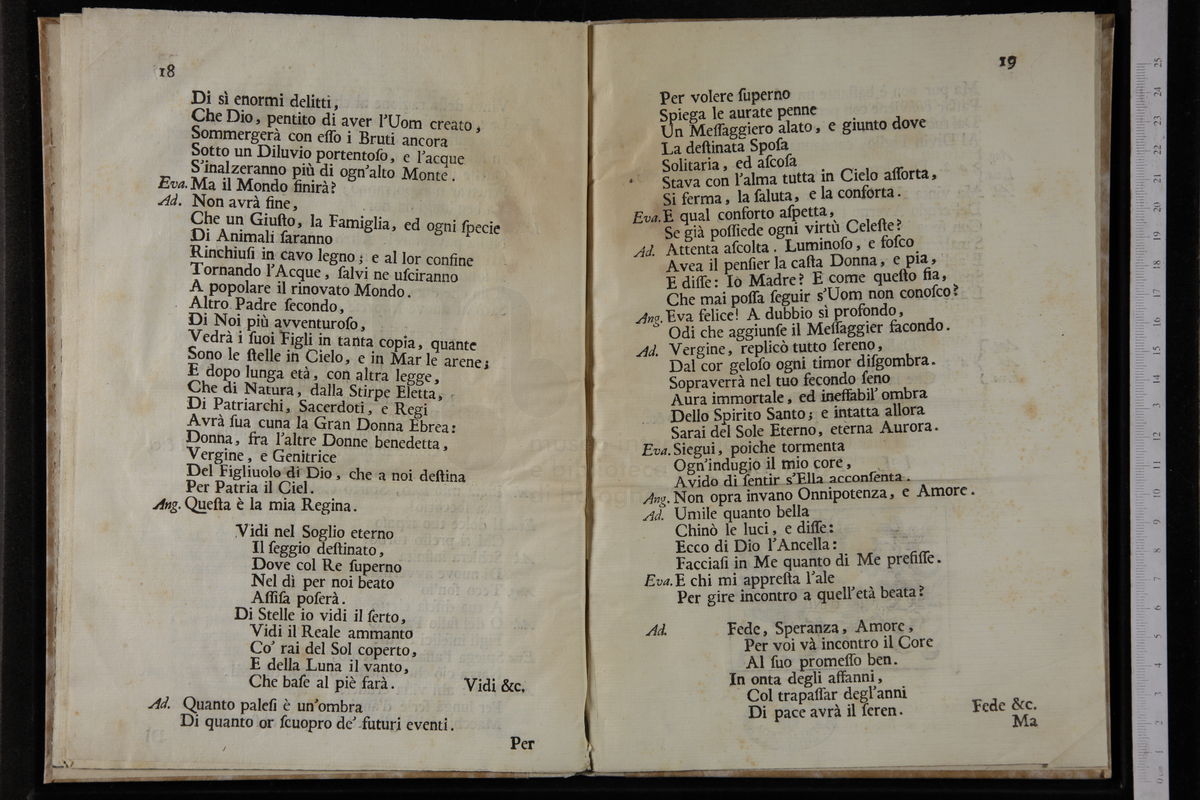 18
Di sì enormi delitti,
Che Dio, pentito di aver l'Uom creato,
Sommergerà con eſſo i Bruti ancora
Sotto un Diluvio portentoſo, e l'acque
S'inalzeranno più di ogn'alto Monte.
Eva. Ma il Mondo finirà?
Ad. Non avrà fine,
Che un Giuſto, la Famiglia, ed ogni ſpecie
Di Animali ſaranno
Rinchiuſi in cavo legno; e al lor confine
Tornando l'Acque, ſalvi ne uſciranno
A popolare il rinovato Mondo.
Altro Padre ſecondo,
Di Noi più avventuroſo,
Vedrà i ſuoi Figli in tanta copia, quante
Sono le ſtelle in Cielo, e in Mar le arene;
E dopo lunga età, con altra legge,
Che di Natura, dalla Stirpe Eletta,
Di Patriarchi, Sacerdoti, e Regi
Avrà ſua cuna la Gran Donna Ebrea:
Donna, fra l'altre Donne benedetta,
Vergine, e Genitrice
Del Figliuolo di Dio, che a noi deſtina
Per Patria il Ciel.
Ang. Queſta è la mia Regina.
Vidi nel Soglio eterno
Il ſeggio deſtinato,
Dove col Re ſuperno
Nel dì per noi beato
Aſſiſa poſerà.
Di Stelle io vidi il ſerto,
Vidi il Reale ammanto
Co' rai del Sol coperto,
E della Luna il vanto,
Che baſe al piè farà. Vidi &c.
Ad. Quanto paleſi è un'ombra
Di quanto or ſcuopro de' futuri eventi.
Per
19
Per volere ſuperno
Spiega le aurate penne
Un Meſſaggiero alato, e giunto dove
La deſtinata Spoſa
Solitaria, ed aſcoſa
Stava con l'alma tutta in Cielo aſſorta,
Si ferma, la ſaluta, e la conforta.
Eva. E qual conforto aſpetta,
Se già poſſiede ogni virtù Celeſte?
Ad. Attenta aſcolta. Luminoſo, e foſco
Avea il penſier la caſta Donna, e pia,
E diſſe: Io Madre? E come queſto fia,
Che mai poſſa ſeguir s'Uom non conoſco?
Ang. Eva felice! A dubbio sì profondo,
Odi che aggiunſe il Meſſaggier facondo.
Ad. Vergine, replicò tutto ſereno,
Dal cor geloſo ogni timor diſgombra.
Sopraverrà nel tuo fecondo ſeno
Aura immortale, ed ineffabil' ombra
Dello Spirito Santo; e intatta allora
Sarai del Sole Eterno, eterna Aurora.
Eva. Siegui, poiche tormenta
Ogn'indugio il mio core,
Avido di ſentir s'Ella acconſenta.
Ang. Non opra invano Onnipotenza, e Amore.
Ad. Umile quanto bella
Chinò le luci, e diſſe:
Ecco di Dio l'Ancella:
Facciaſi in Me quanto di Me prefiſſe.
Eva. E chi mi appreſta l'ale
Per gire incontro a quell'età beata?
Ad. Fede, Speranza, Amore,
Per voi và incontro il Core
Al ſuo promeſſo ben.
In onta degli affanni,
Col trapaſſar degl'anni
Di pace avrà il ſeren. Fede &c.
Ma